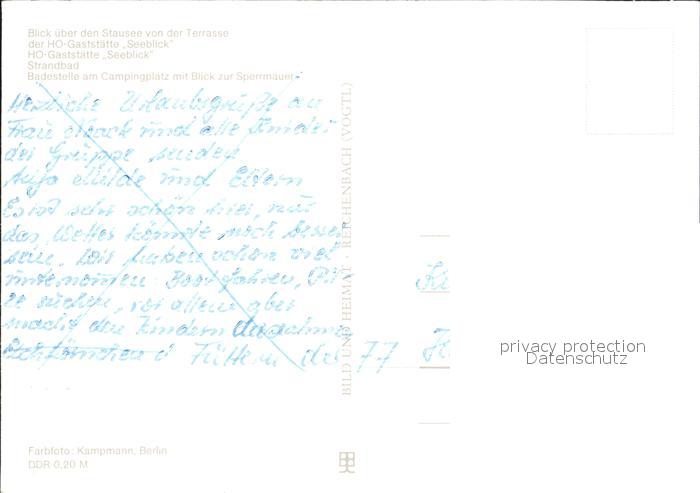 Blick über den Stausee von der Terrasse
der HO-Gaststätte „Seeblick“
HO-Gaststätte „Seeblick“
Strandbad
Badestelle am Campingplatz mit Blick zur Sperrmauer
Herzliche Urlaubsgrüße an
Frau Noack und alle Kinder
der Gruppe senden
Milde und Eltern
Es ist sehr schön hier, nur
das Wetter könnte noch besser
sein. Wir haben schon viel
unternommen: Boot fahren, Pil-
ze suchen, vor allem aber
macht den Kindern das
Füttern der
BILD UND HEIMAT · REICHENBACH (VOGTL)
77
privacy protection
Datenschutz
Farbfoto: Kampmann, Berlin
DDR 0,20 M